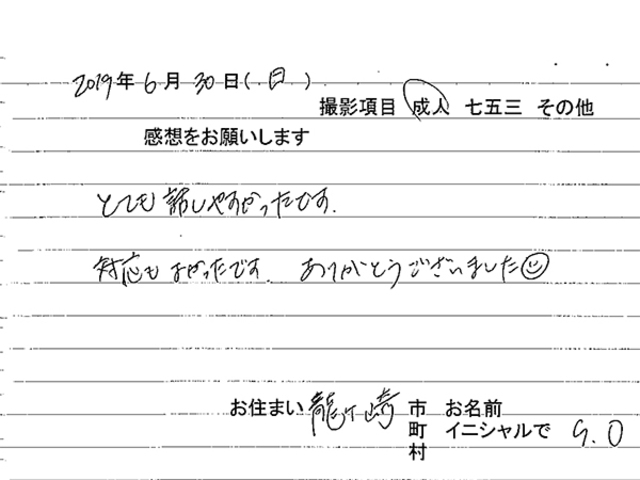 2019年6月30日(日)
撮影項目 成人 七五三 その他
感想をお願いします
とても話しやすかったです.
対応もよかったです. ありがとうございました☺
お住まい 龍ヶ崎 市 お名前
町 イニシャルで S.O
村